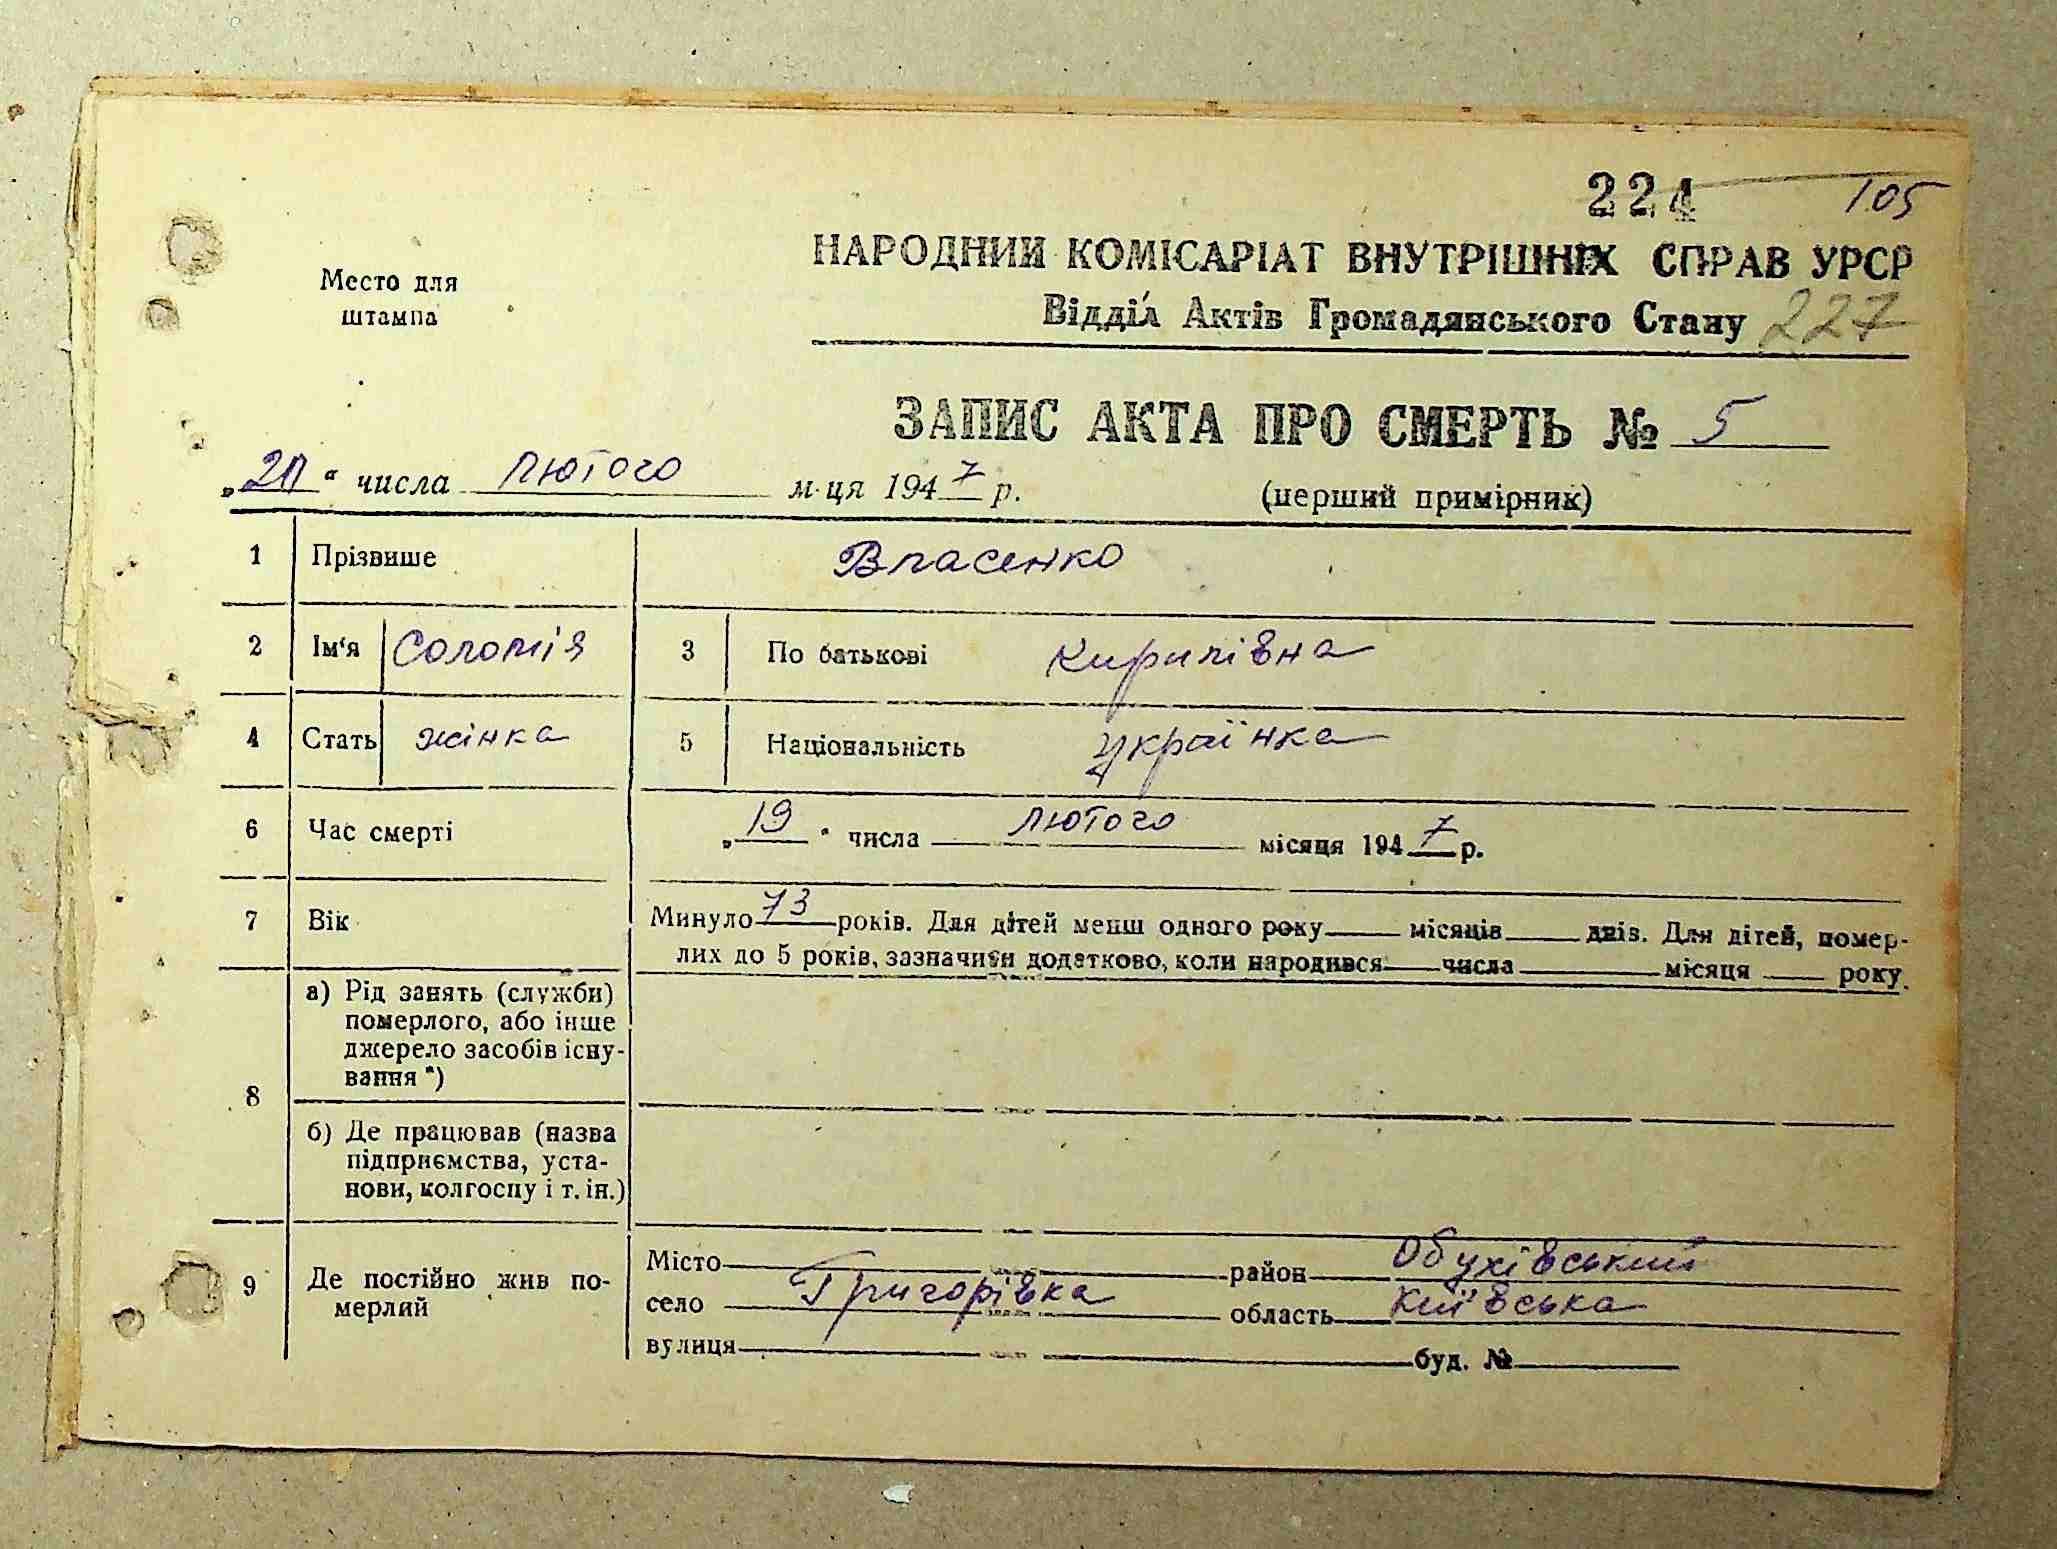 224 105
НАРОДНИЙ КОМІСАРІАТ ВНУТРІШНІХ СПРАВ УРСР
Место для
штампа
Відділ Актів Громадянського Стану 227
ЗАПИС АКТА ПРО СМЕРТЬ № 5
„20“ числа лютого м-ця 1947 р. (перший примірник)
1 Прізвише Власенко
2 Ім‘я Соломія 3 По батькові Кирилівна
4 Стать жінка 5 Національність українка
6 Час смерті „19“ числа лютого місяця 1947 р.
7 Вік Минуло 73 років. Для дітей менш одного року місяців днів. Для дітей, помер-
лих до 5 років, зазначити додатково, коли народився числа місяця року.
8 а) Рід занять (служби)
померлого, або інше
джерело засобів існу-
вання *)
б) Де працював (назва
підприємства, уста-
нови, колгоспу і т. ін.)
9 Де постійно жив по-
мерлий
Місто район Обухівський
село Григорівка область Київська
вулиця буд. №